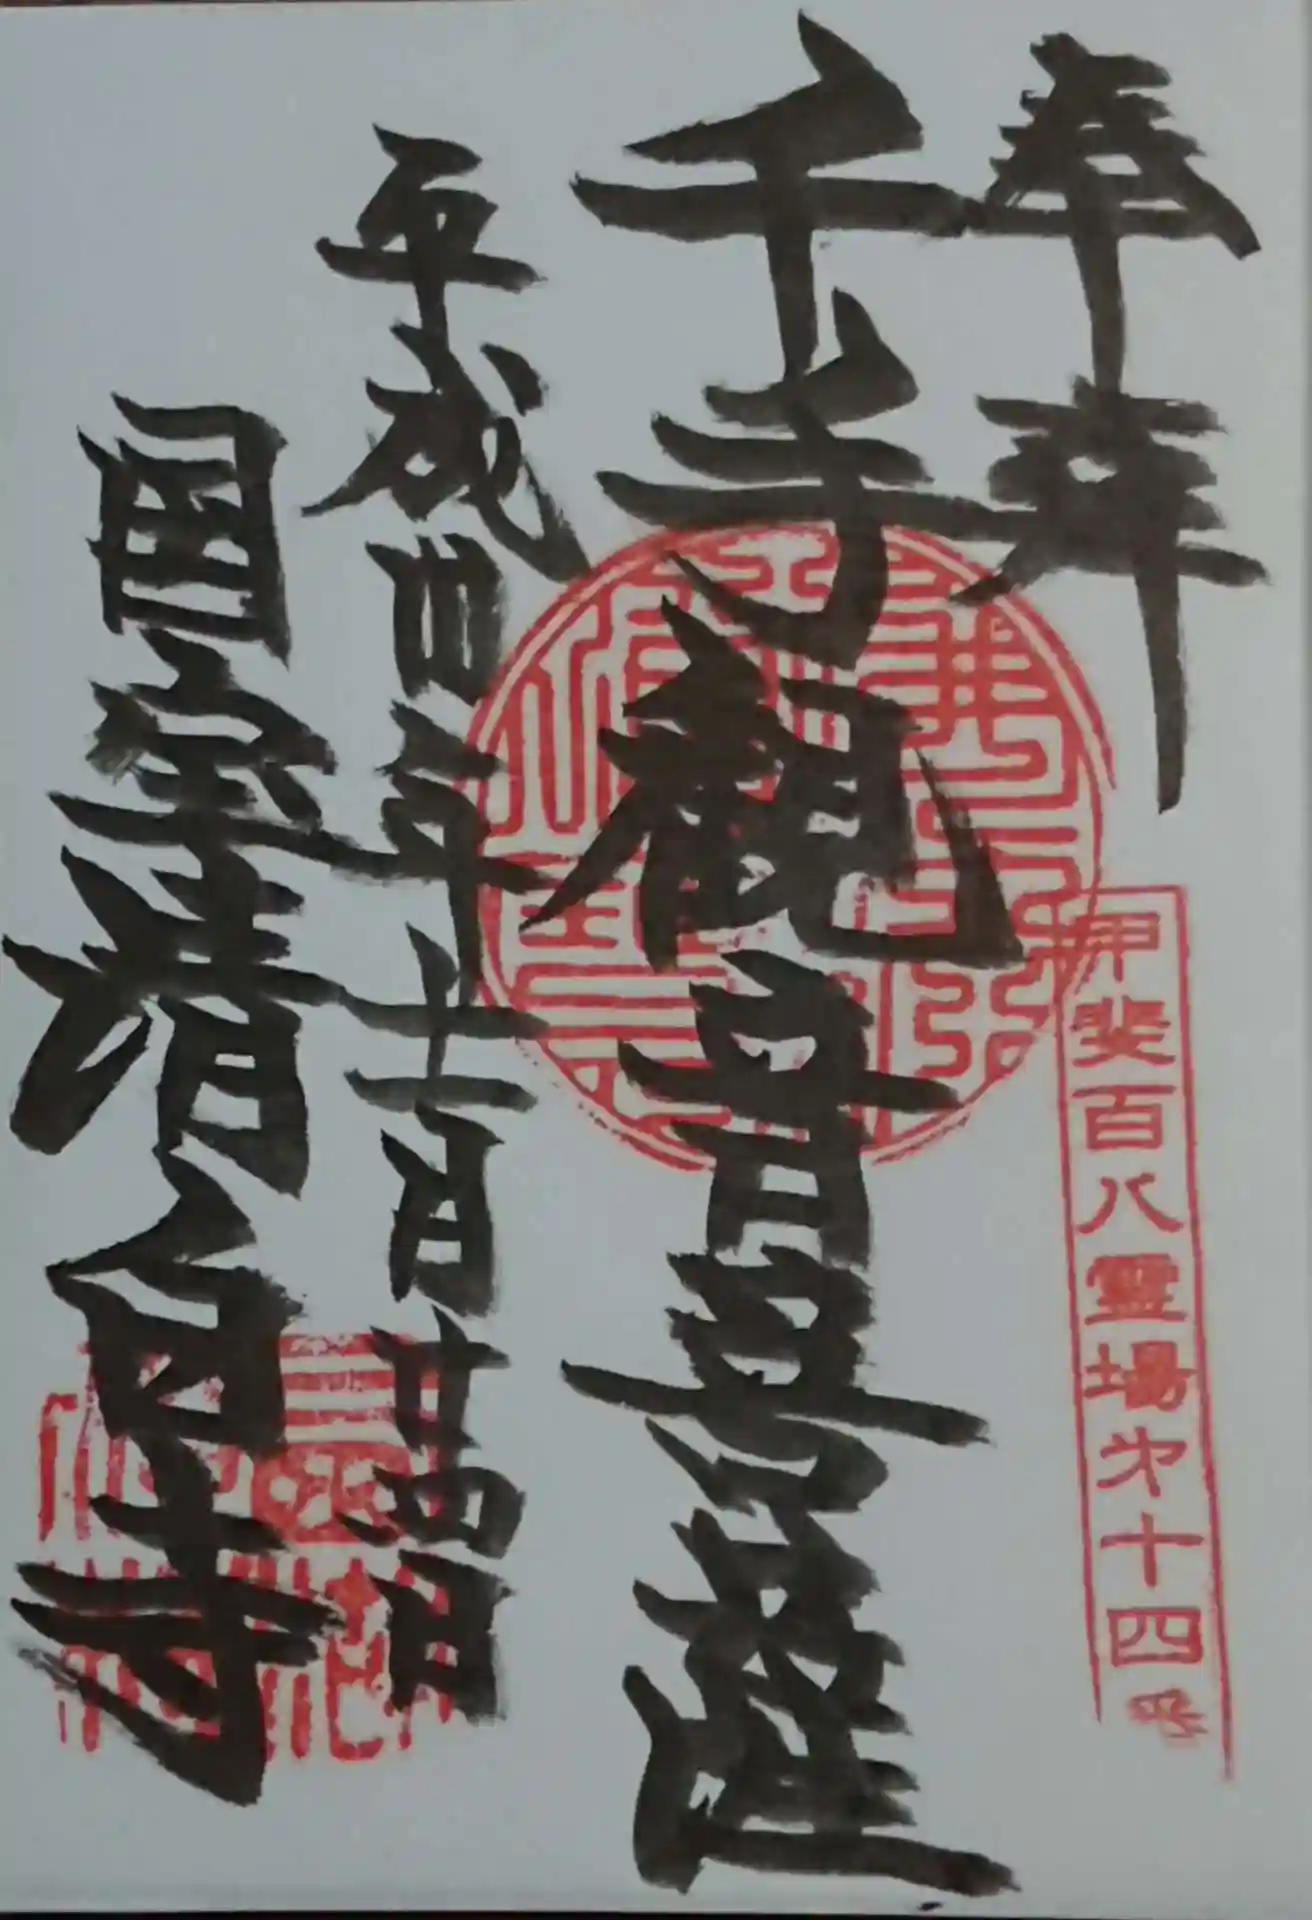 奉拝
甲斐百八霊場第十四
千手観音菩薩
平成卅年十一月廿四日
国宝清白寺